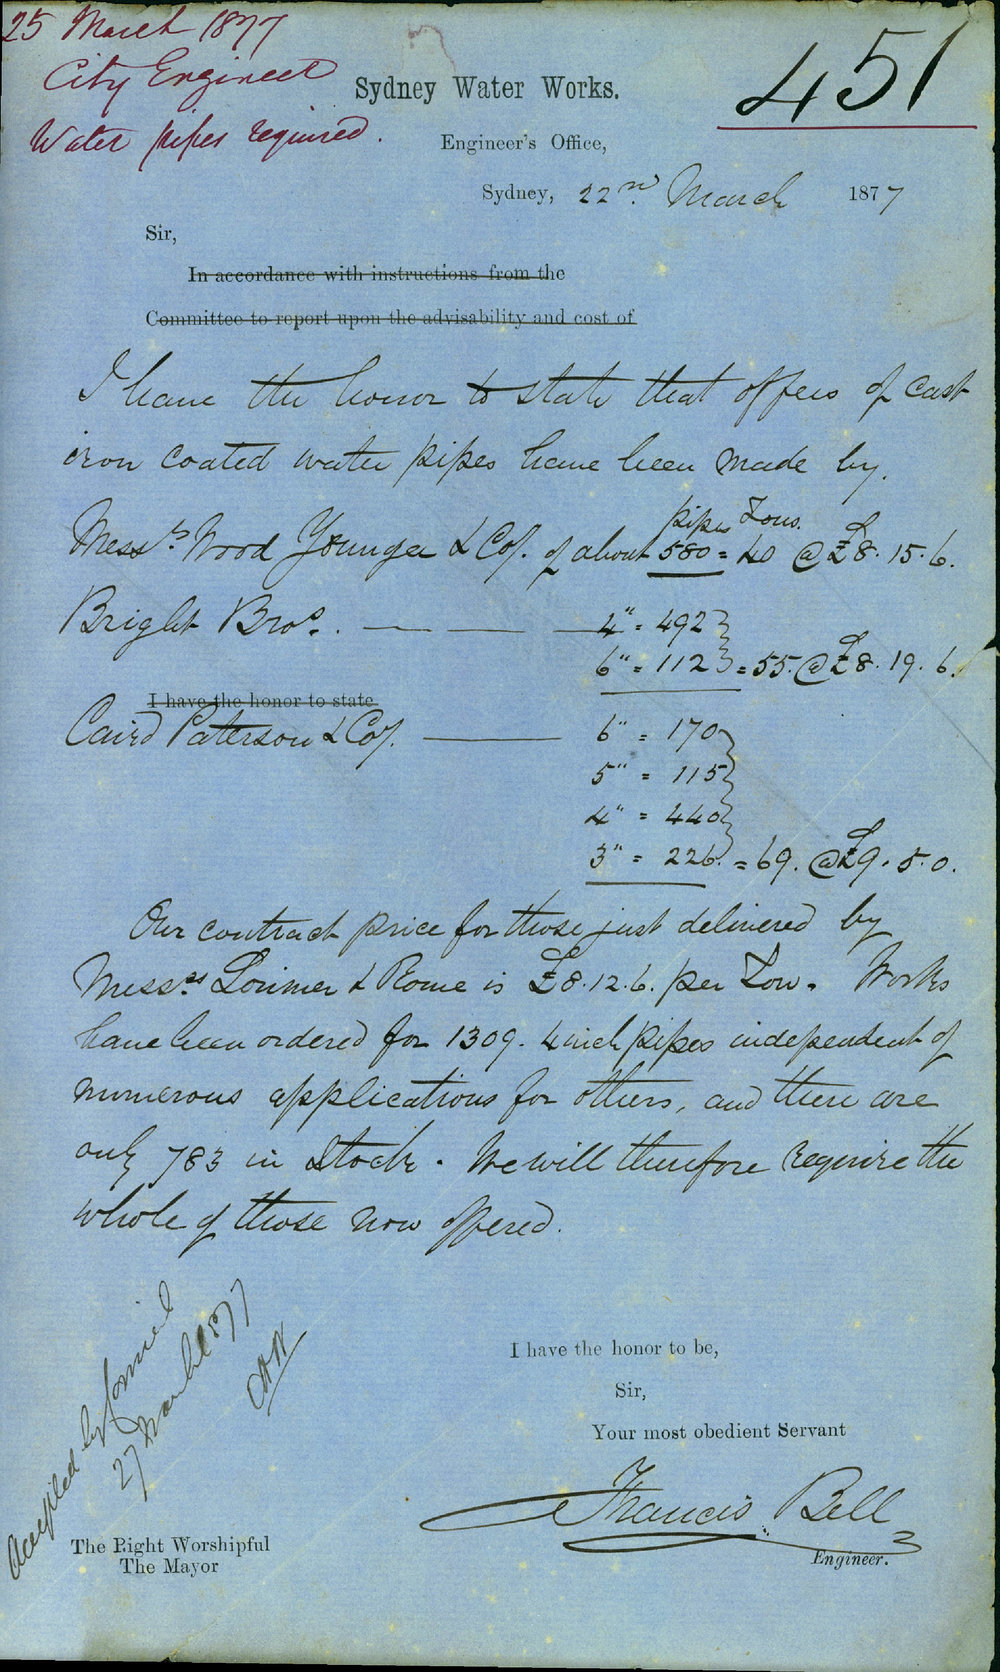 25 March 1877
City Engineer
Water pipes required.
451
Sydney Water Works.
Engineer's Office,
Sydney, 22nd March 1877
Sir,
In accordance with instructions from the
Committee to report upon the advisability and cost of
I have the honor to state that offers of cast
iron coated water pipes have been made by.
pipes Tons.
Messrs. Wood Younger & Co/. of about 580 = 40 @ £8.15.6.
Bright Bros. — — — 4" = 492
6" = 112 = 55. @ £8.19.6.
I have the honor to state
Caird Paterson & Co/. — 6" = 170
5" = 115
4" = 440
3" = 226. = 69. @ £9.5.0.
Our contract price for those just delivered by
Messrs. Lorimer & Rome is £8.12.6. per Ton. Works
have been ordered for 1309. 4 inch pipes independent of
numerous applications for others, and there are
only 783 in Stock. We will therefore require the
whole of those now offered.
Accepted by Council
27 March 1877
I have the honor to be,
Sir,
Your most obedient Servant
Francis Bell
Engineer.
The Right Worshipful
The Mayor